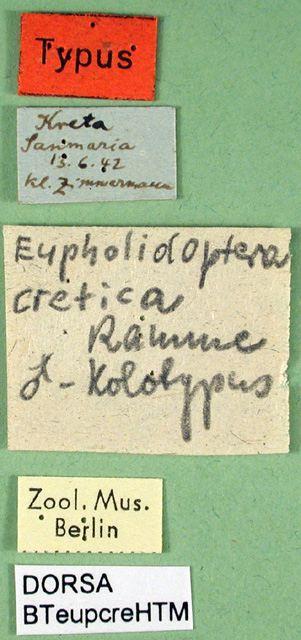 Typus
Kreta
Sanmaria
13.6.42
kl. Zimmermann
Eupholidoptera
cretica
Ramme
♂-Holotypus
Zool. Mus.
Berlin
DORSA
BTeupcreHTM